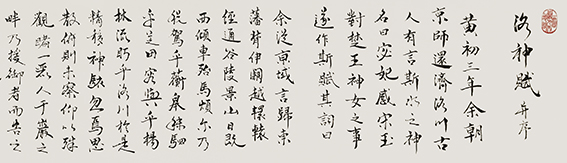 洛神賦 并序
黃初三年余朝
京師還濟洛川古
人有言斯水之神
名曰宓妃感宋玉
對楚王神女之事
遂作斯賦其詞曰
余從京域言歸東
藩背伊闕越轘轅
經通谷陵景山日既
西傾車殆馬煩尔乃
稅駕乎蘅皋秣駟
乎芝田容與乎楊
林流眄乎洛川於是
精移神駭忽焉思
散俯則未察仰以殊
觀睹一麗人于巖之
畔乃援御者而告之